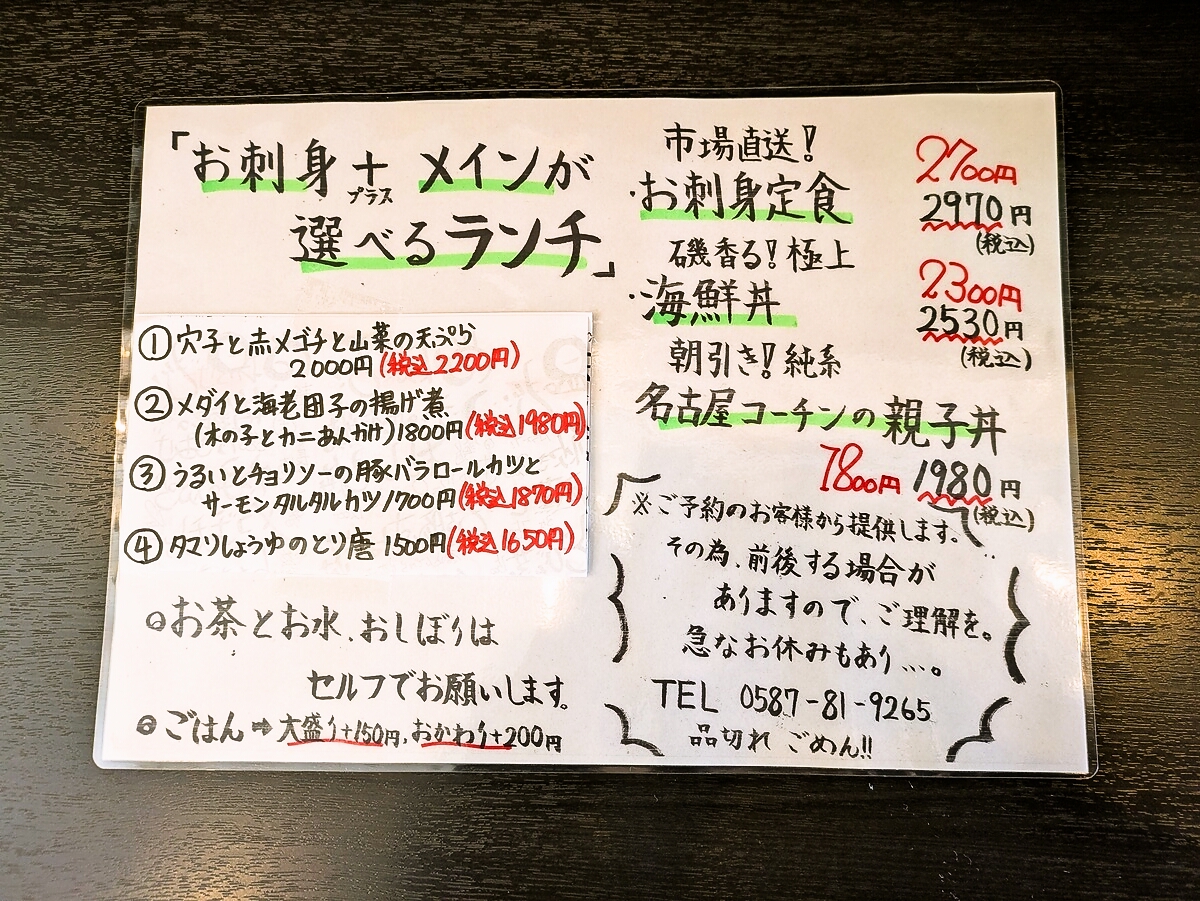 「お刺身+メインが
プラス
選べるランチ」
①穴子と赤メゴチと山菜の天ぷら
2000円(税込2200円)
②メダイと海老団子の揚げ煮
(木の子とカニあんかけ)1800円(税込1980円)
③うるいとチョリソーの豚バラロールカツと
サーモンタルタルカツ1700円(税込1870円)
④タマリしょうゆのとり唐 1500円(税込1650円)
お茶とお水、おしぼりは
セルフでお願いします。
ごはん➡大盛り+150円、おかわり+200円
市場直送!
・お刺身定食
2700円
2970円
(税込)
磯香る!極上
・海鮮丼
2300円
2530円
(税込)
朝引き!純系
名古屋コーチンの親子丼
1800円 1980円
(税込)
※ご予約のお客様から提供します。
その為、前後する場合が
ありますので、ご理解を。
急なお休みもあり…。
TEL 0587-81-9265
品切れ ごめん!!